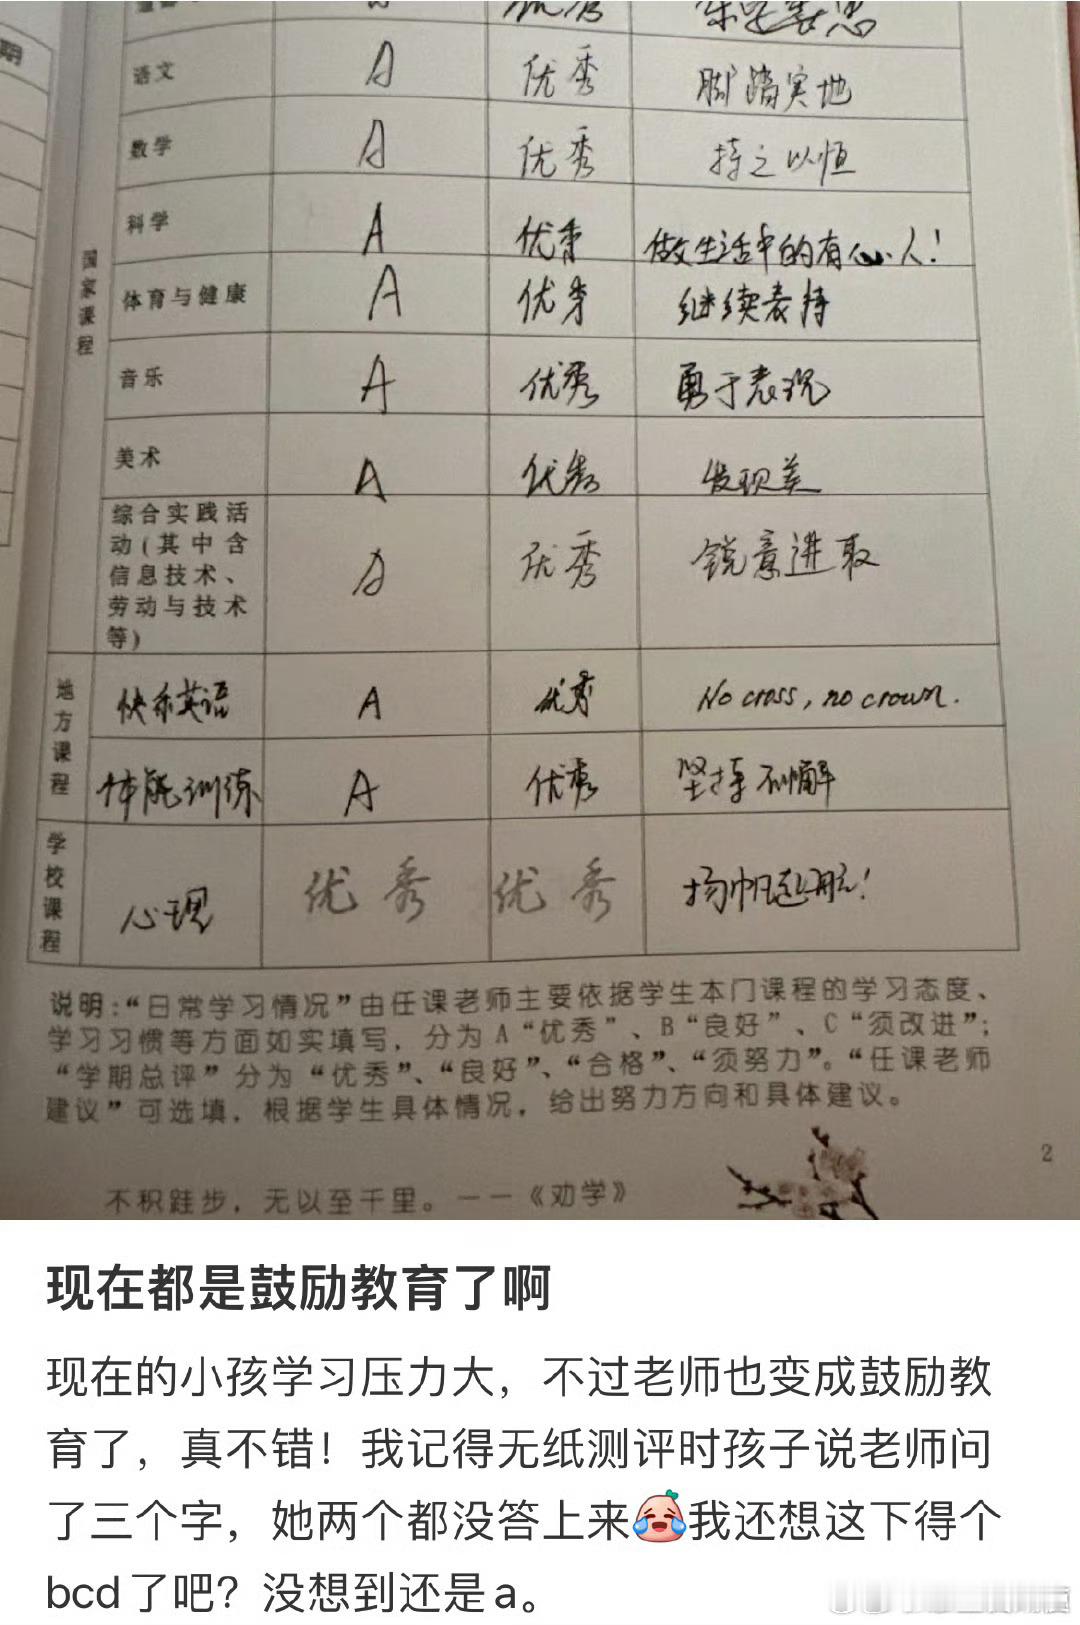 期
语文 A 优秀 脚踏实地
数学 A 优秀 持之以恒
国家课程
科学 A 优秀 做生活中的有心人!
体育与健康 A 优秀 继续保持
音乐 A 优秀 勇于表现
美术 A 优秀 发现美
综合实践活
动(其中含
信息技术、
劳动与技术
等) A 优秀 锐意进取
地方课程
快乐英语 A 优秀 No cross, no crown.
体能训练 A 优秀 坚持不懈
学校课程
心理 优秀 优秀 扬帆起航!
说明:“日常学习情况”由任课老师主要依据学生本门课程的学习态度、
学习习惯等方面如实填写，分为 A“优秀”、B“良好”、C“须改进”;
“学期总评”分为“优秀”、“良好”、“合格”、“须努力”。“任课老师
建议”可选填，根据学生具体情况，给出努力方向和具体建议。
2
不积跬步，无以至千里。——《劝学》
现在都是鼓励教育了啊
现在的小孩学习压力大，不过老师也变成鼓励教
育了，真不错！我记得无纸测评时孩子说老师问
了三个字，她两个都没答上来😂我还想这下得个
bcd了吧？没想到还是a。